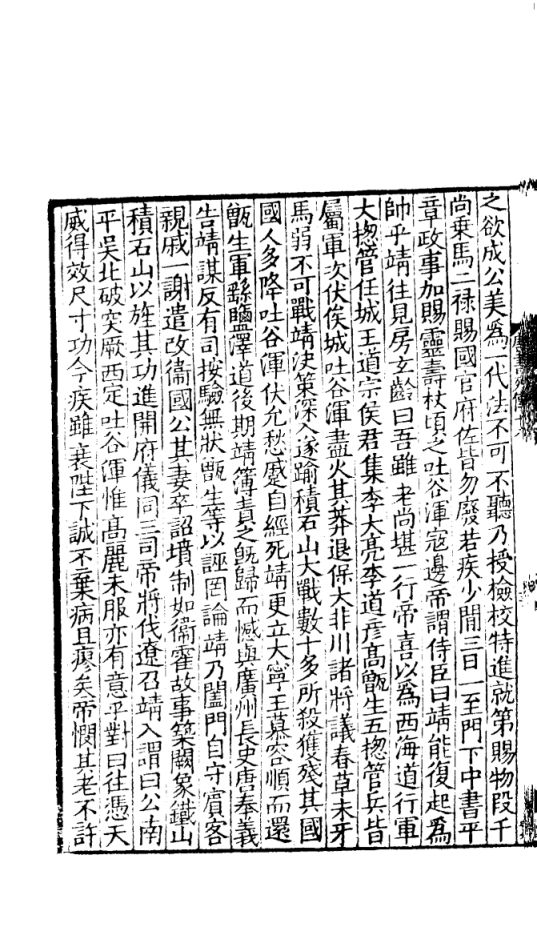 之欲成公美爲一代法不可不聽乃授檢校特進就第賜物段千
尚乗馬二祿賜國官府佐皆勿廢若疾少間三日一至門下中書平
章政事加賜靈壽杖頃之吐谷渾寇邊帝謂侍臣曰靖能復起爲
帥乎靖往見房玄齡曰吾雖老尚堪一行帝喜以爲西海道行軍
大揔管任城王道宗侯君集李大亮李道彥髙甑生五揔管兵皆
屬軍次伏俟城吐谷渾盡火其莽退保大非川諸將議春草未牙
馬弱不可戰靖決策深入遂踰積石山大戰數十多所殺獲殘其國
國人多降吐谷渾伏允愁蹙自經死靖更立大寧王慕容順而還
甑生軍繇鹽澤道後期靖簿責之旣歸而憾與廣州長史唐奉義
告靖謀反有司按驗無狀甑生等以誣罔論靖乃闔門自守賔客
親戚一謝遣改衞國公其妻卒詔墳制如衞霍故事築闕象鐵山
積石山以旌其功進開府儀同三司帝將伐遼召靖入謂曰公南
平吳北破突厥西定吐谷渾惟髙麗未服亦有意乎對曰往憑天
威得效尺寸功今疾雖衰陛下誠不棄病且瘳矣帝憫其老不許